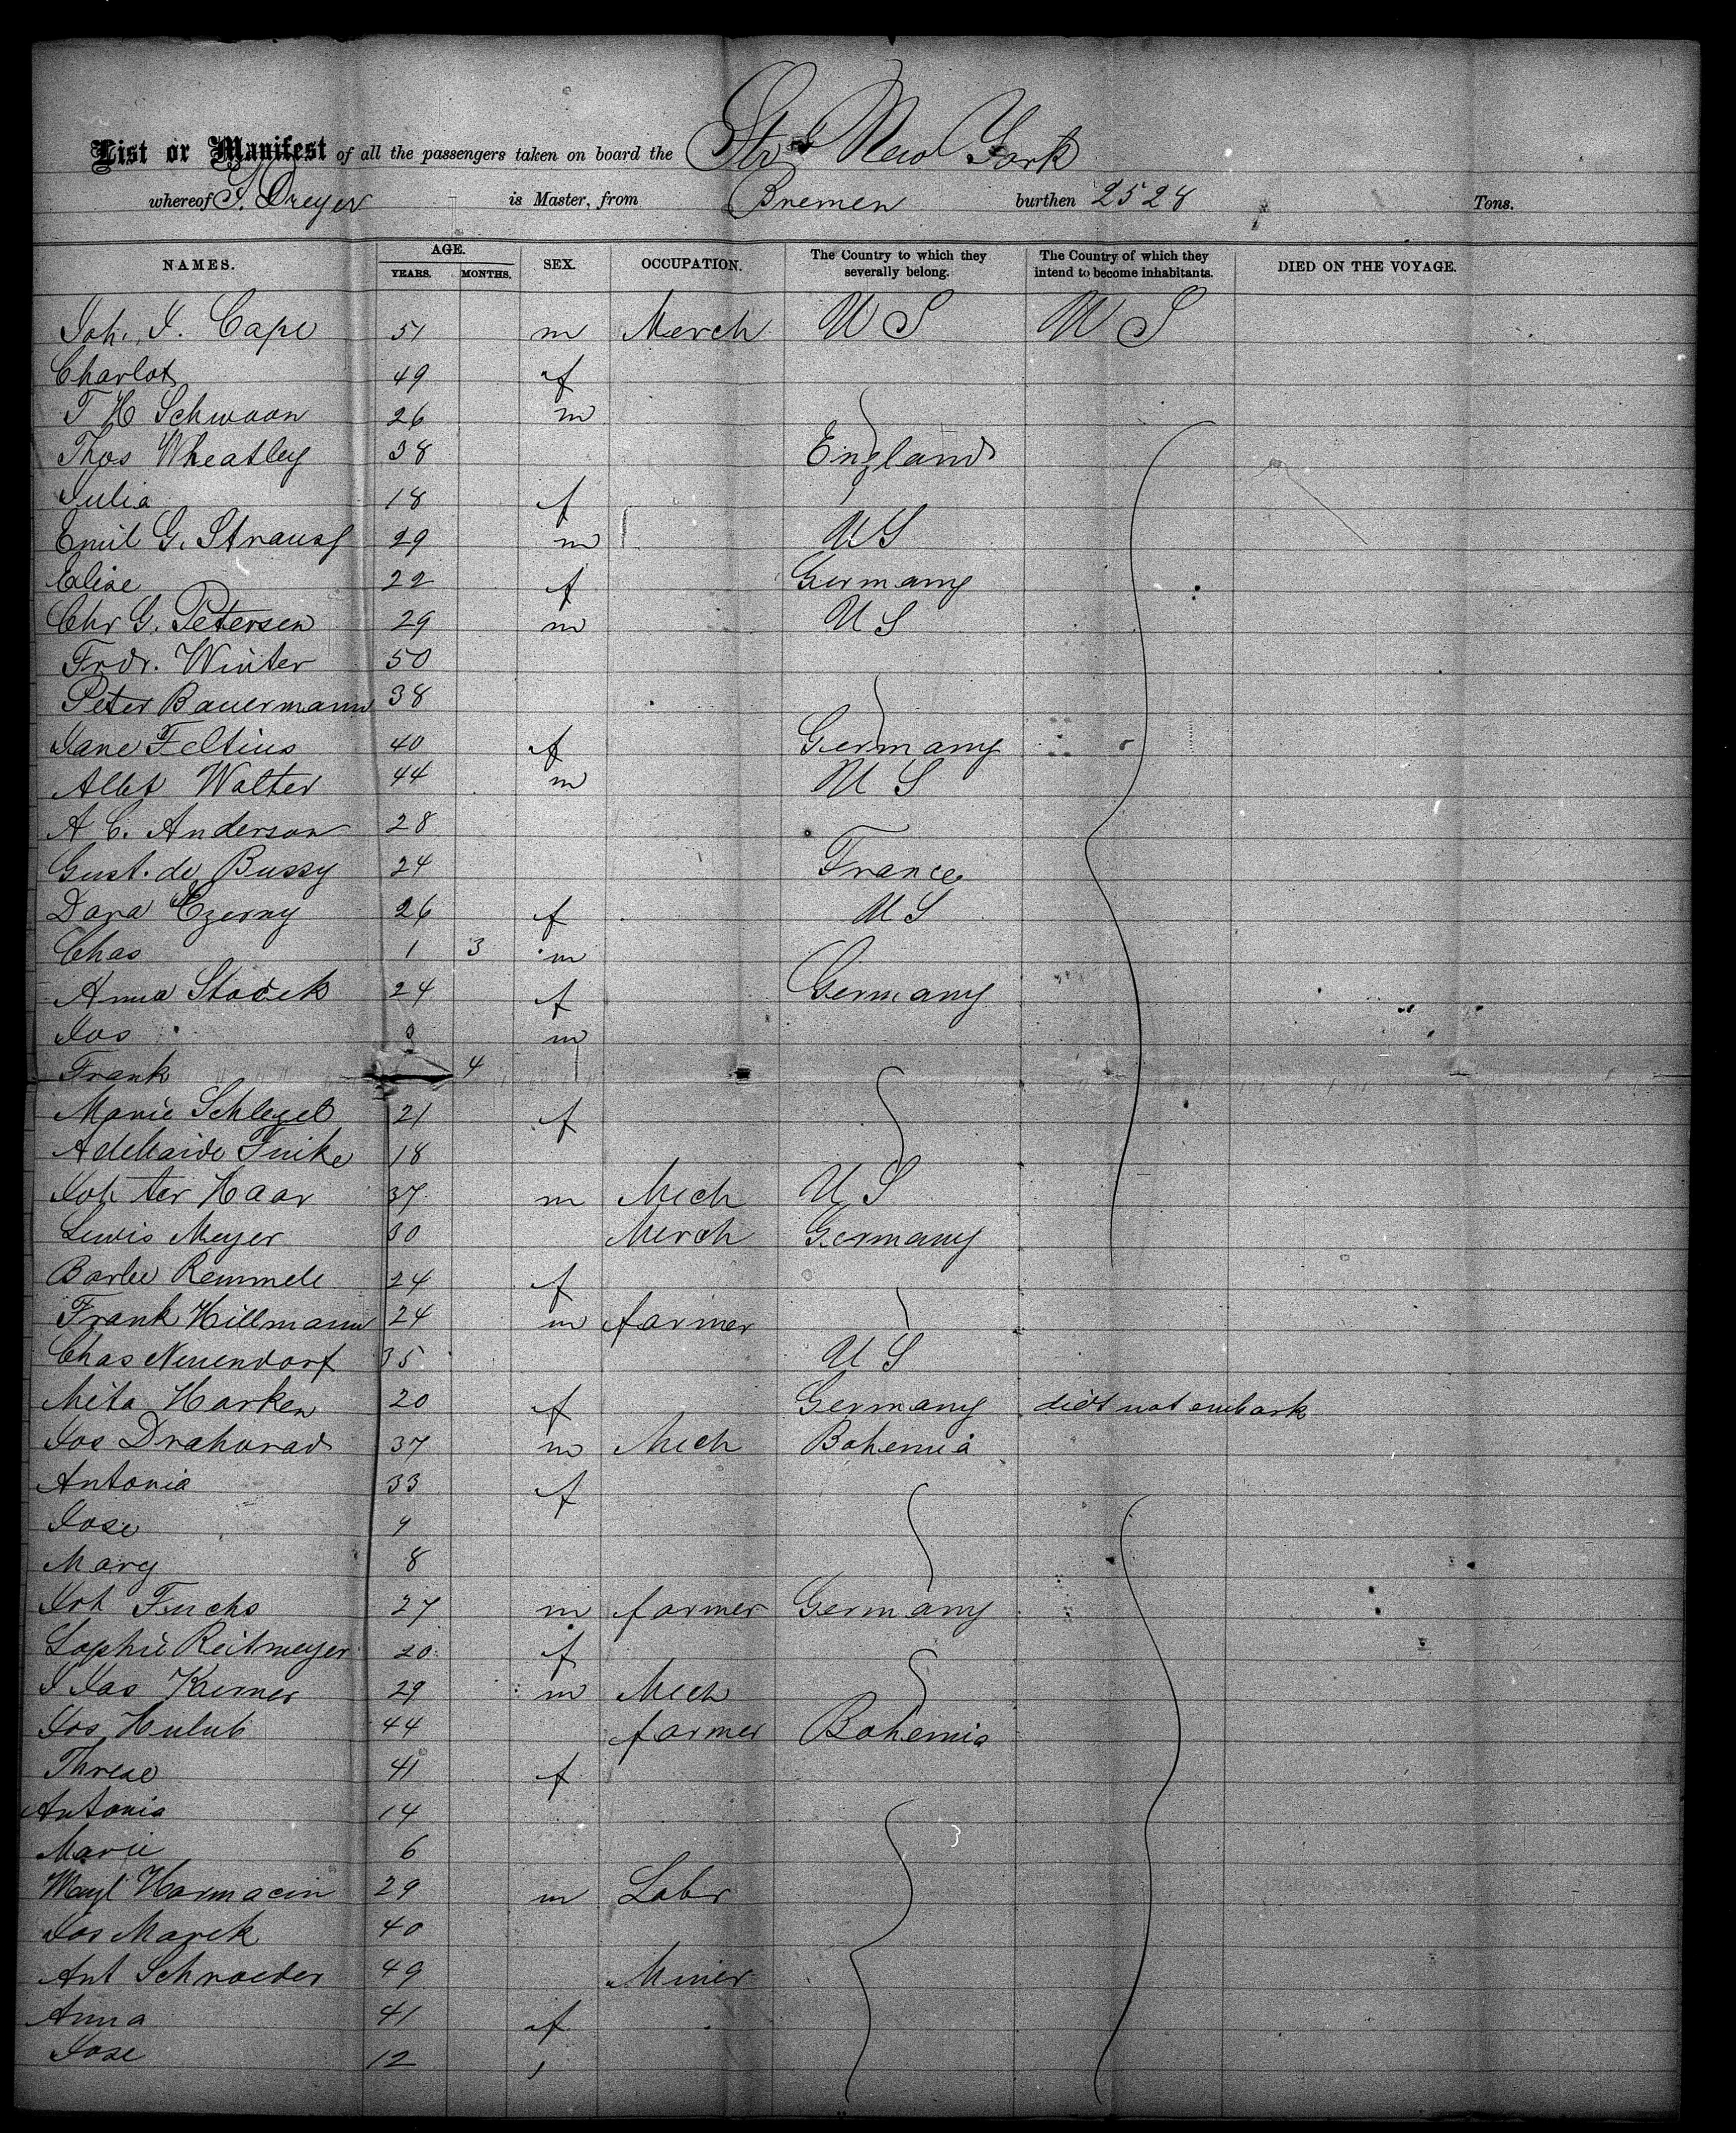 List or Manifest of all the passengers taken on board the Str New York
whereof J. Dreyer is Master, from Bremen burthen 2528 Tons.
NAMES. AGE. YEARS. MONTHS. SEX. OCCUPATION. The Country to which they severally belong. The Country of which they intend to become inhabitants. DIED ON THE VOYAGE.
Joh. J. Cape 51 m Merch U S U S
Charlot 49 f
T H Schwoon 26 m
Thos Wheatley 38 England
Julia 18 f
Emil G. Strauss 29 m U S
Elise 22 f Germany
Chr G. Petersen 29 m U S
Frdr. Winter 50
Peter Bauermann 38
Jane Feltius 40 f Germany
Albt Walter 44 m U S
A C. Anderson 28
Gust. de Bussy 24 France
Dora Czerny 26 f U S
Chas 1 3 m
Anna Stocek 24 f Germany
Jos m
Frank 4
Marie Schlegel 21 f
Adelhaide Finke 18
Joh ter Haar 37 m Mech U S
Lewis Meyer 30 Merch Germany
Barbe Remmele 24 f
Frank Hillmann 24 m farmer
Chas Neuendorf 35 U S
Meta Harken 20 f Germany did not embark
Jos Drahorad 37 m Mech Bohemia
Antonia 33 f
Jose 9
Mary 8
Joh Fuchs 27 m farmer Germany
Sophie Reitmeyer 20 f
J Jas Kerner 29 m Mech
Jos Hulub 44 farmer Bohemia
Threse 41 f
Antonia 14
Marie 6
Harmacin 29 m Labr
Jos Marek 40
Ant Schroeder 49 Miner
Anna 41 f
Jose 12